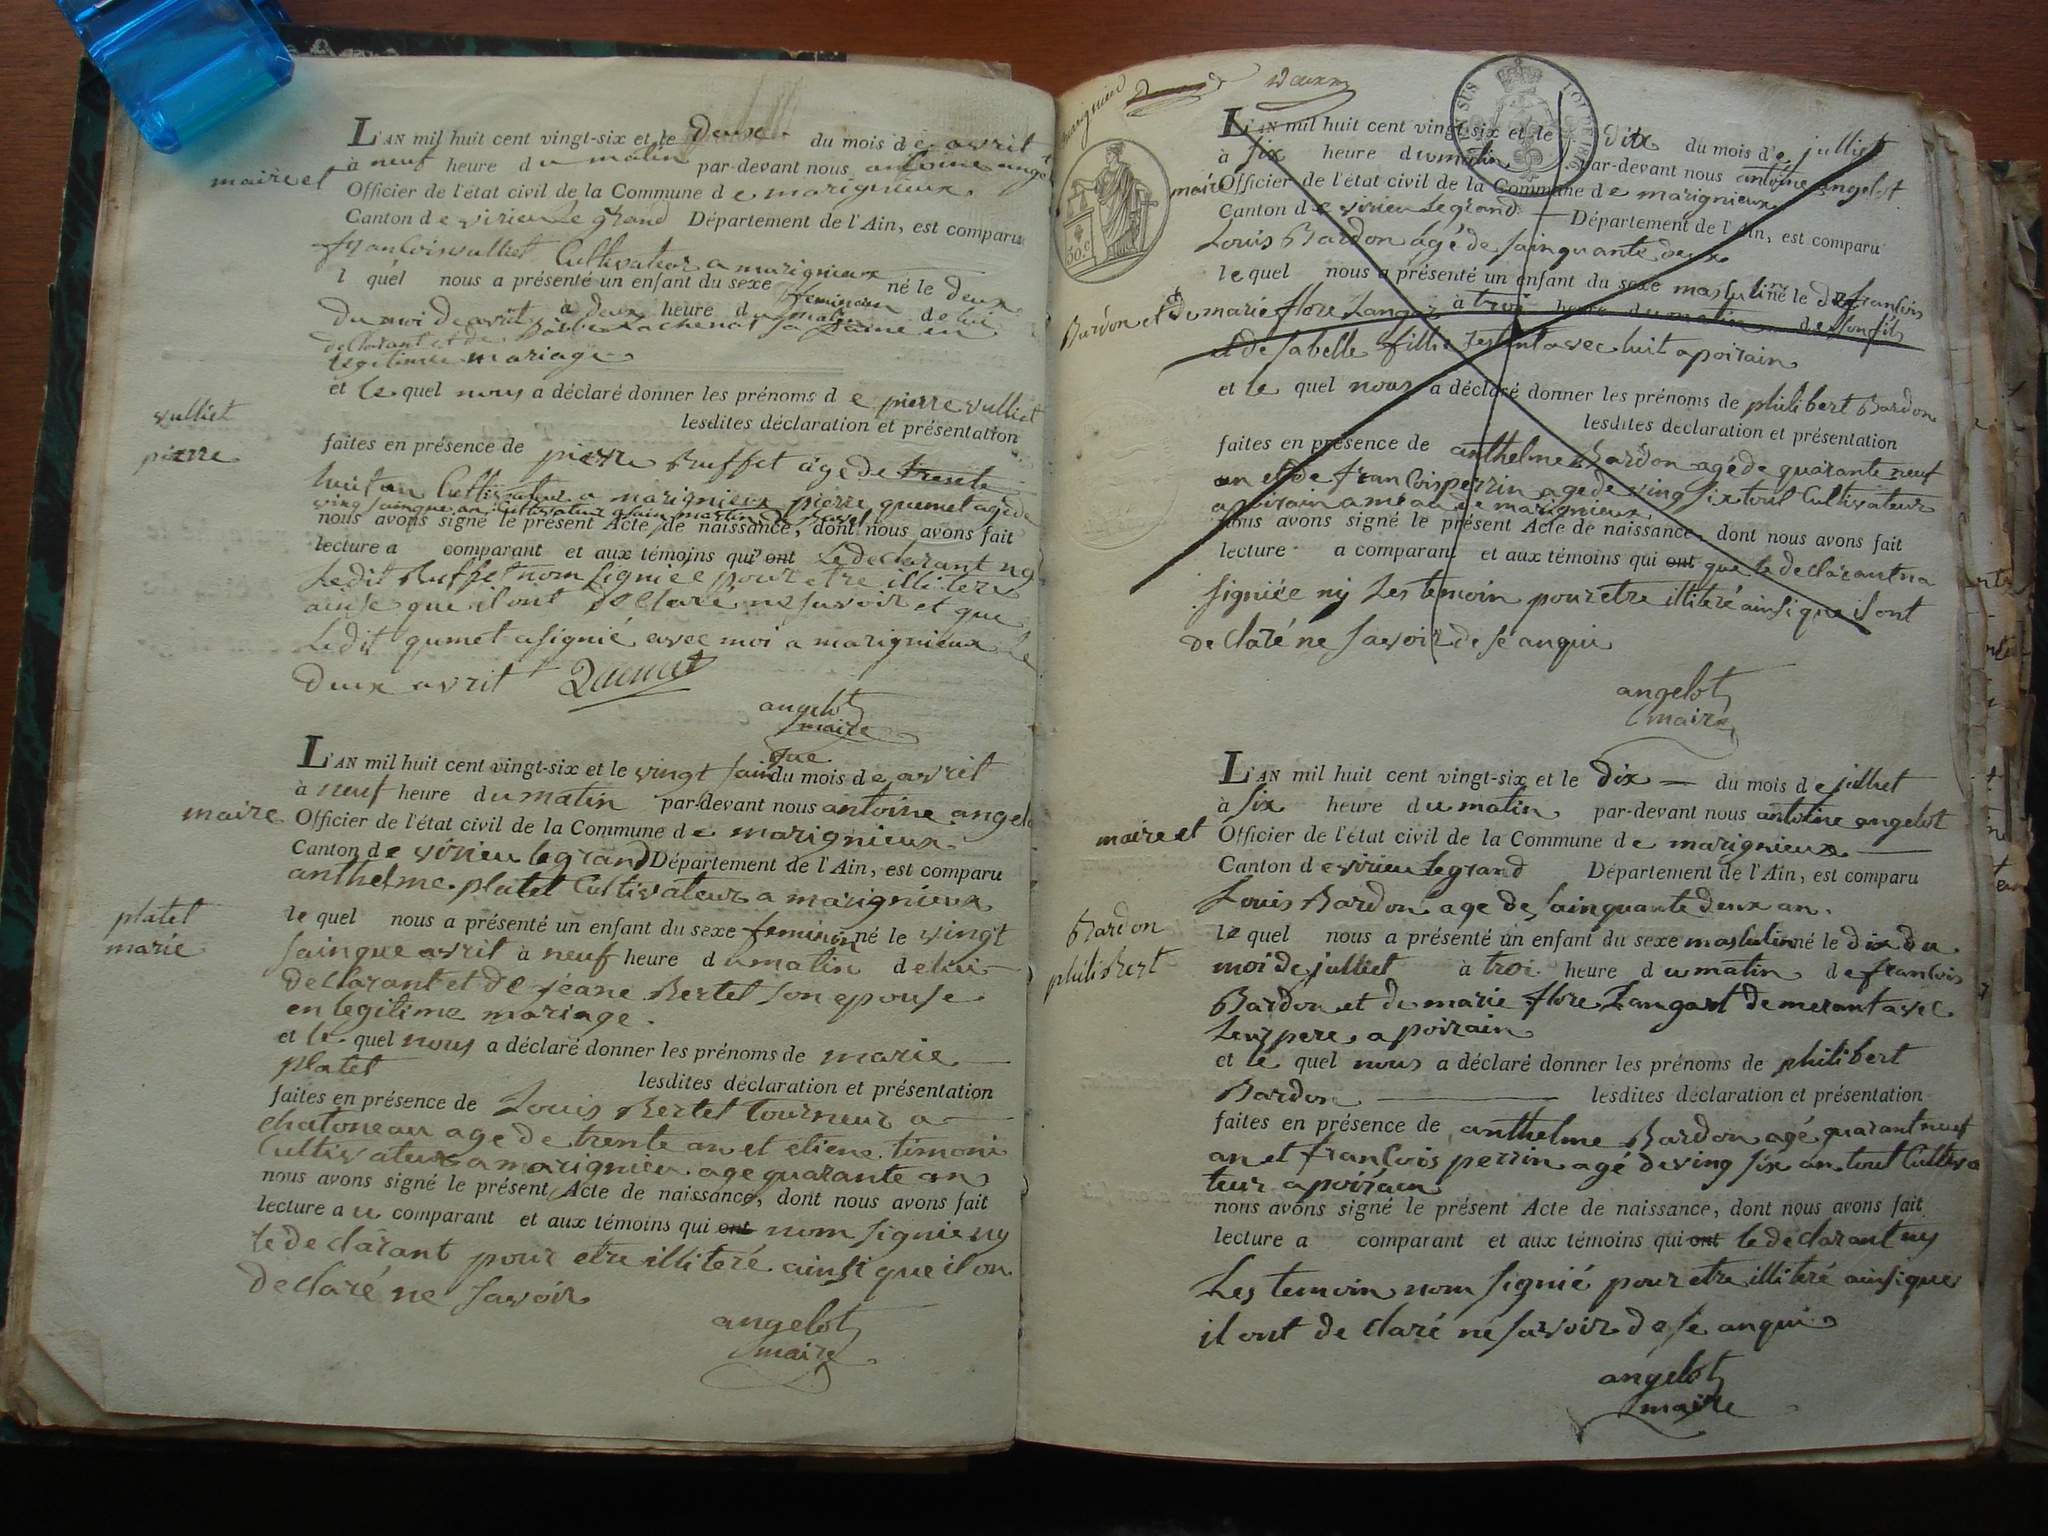 L'AN mil huit cent vingt-six et le deux du mois de avril
à neuf heure du matin par-devant nous antoine angelot
maire et Officier de l'état civil de la Commune de marignieux
Canton de virieu le grand Département de l'Ain, est comparu
francois vulliet Cultivateur a marignieux
lequel nous a présenté un enfant du sexe feminin né le deux
du moi de avril à deux heure du matin de lui
declarant et de sa fame en
legitime mariage
et le quel nous a déclaré donner les prénoms de pierre vulliet
lesdites déclaration et présentation
vulliet
pierre
faites en présence de pierre Buffet agé de trente
huit an Cultivateur a marignieux pierre quemet agé de
ving sainque an Cultivateur
nous avons signé le présent Acte de naissance, dont nous avons fait
lecture a comparant et aux témoins qui ont Le declarant ny
Ledit Buffet nom signiée pour etre illiteré
ainse que il ont declaré ne savoir et que
Ledit qumet a signié avec moi a marignieux Le
deux avril Quemet
angelot
maire
L'AN mil huit cent vingt-six et le vingt sainque du mois de avril
à neuf heure du matin par-devant nous antoine angelo
maire Officier de l'état civil de la Commune de marignieux
Canton de virieu le grand Département de l'Ain, est comparu
anthelme platet Cultivateur a marignieux
platet
marie
le quel nous a présenté un enfant du sexe feminin né le vingt
sainque avril à neuf heure du matin de lui
declarant et de jeane Bertet son epouse
en legitime mariage
et le quel nous a déclaré donner les prénoms de marie
platet lesdites déclaration et présentation
faites en présence de Louis Bertet tourneur a
chatoneau age de trente an et etiene timoni
Cultivateur a marignieu age quarante an
nous avons signé le présent Acte de naissance, dont nous avons fait
lecture au comparant et aux témoins qui ont nom signie ny
le declarant pour etre illiteré ainsi que il on
declaré ne savoir
angelot
maire
marignieu
L'AN mil huit cent vingt-six et le dix du mois de julliet
à six heure du matin par-devant nous antoine angelot
maire Officier de l'état civil de la Commune de marignieux
Canton de virieu le grand Département de l'Ain, est comparu
Louis Bardon agé de sainquante deux
lequel nous a présenté un enfant du sexe masculin né le dix francois
Bardon et de marie flore Langar à troi heure du matin de son fils
et de sa belle fillie restant avec luit a poirain
et le quel nous a déclaré donner les prénoms de philibert Bardon
lesdites déclaration et présentation
faites en présence de anthelme Bardon agé de quarante neuf
an et de francois perrin age de ving six tout Cultivateur
a poirain ameau de marignieux
nous avons signé le présent Acte de naissance, dont nous avons fait
lecture a comparant et aux témoins qui ont que le declarant na
signiée ny Les temoin pour etre illiteré ainsi que il ont
declaré ne savoir de se anqui
angelot
maire
50 c.
L'AN mil huit cent vingt-six et le dix du mois de julliet
à six heure du matin par-devant nous antoine angelot
maire et Officier de l'état civil de la Commune de marignieux
Canton de virieu le grand Département de l'Ain, est comparu
Louis Bardon age de sainquante deux an
Bardon
philibert
le quel nous a présenté un enfant du sexe masculin né le dix du
moi de julliet à troi heure du matin de francois
Bardon et de marie flore Langart demerant avec
Leur pere a poirain
et le quel nous a déclaré donner les prénoms de philibert
Bardon lesdites déclaration et présentation
faites en présence de anthelme Bardon agé quarant neuf
an et francois perrin agé de ving six an tout Cultiva
teur a poirain
nous avons signé le présent Acte de naissance, dont nous avons fait
lecture a comparant et aux témoins qui ont le declarant ny
Les temoin nom signié pour etre illiteré ainsi que
il ont declaré ne savoir de se anqui
angelot
maire